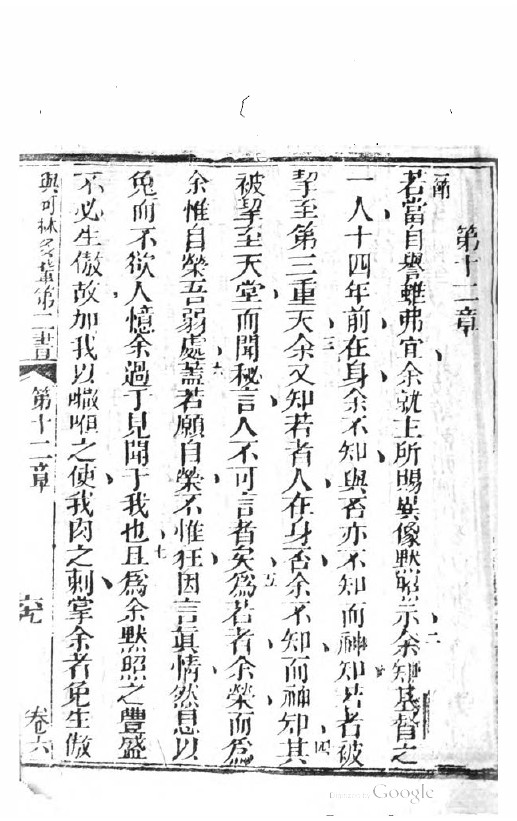 第十二章
一節 若當自譽雖弗宜余就主所賜異像默照示余二知基督之
一人十四年前在身余不知與否亦不知而神知若者被
挈至第三重天三余又知若者人在身否余不知而神知其四
被挈至天堂而聞秘言人不可言者矣五為若者余榮而為
余惟自榮吾弱處六蓋若願自榮不惟狂因言真情然息以
免而不欲人憶余過于見聞于我也七且為余默照之豐盛
不必生傲故加我以之使我肉之刺掌余者免生傲
與可林多輩第二書 第十二章 六 卷六
Digitized by Google